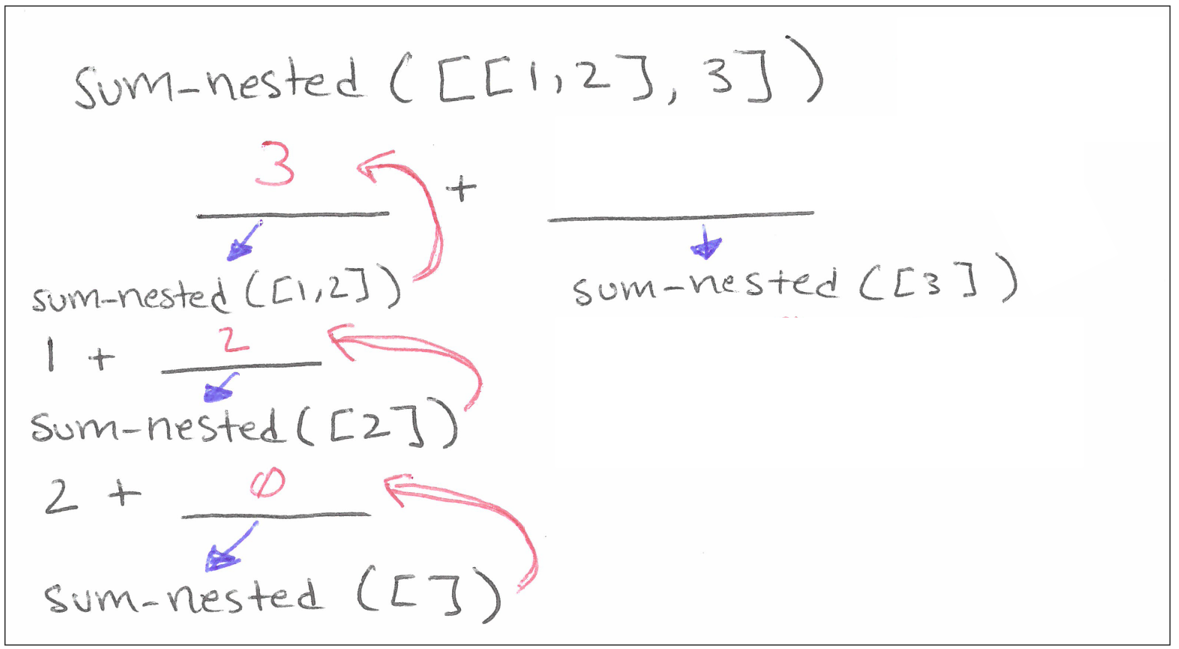 sum-nested([[1,2], 3])
3 +
sum-nested([1,2]) sum-nested([3])
1 + 2
sum-nested([2])
2 + 0
sum-nested([])